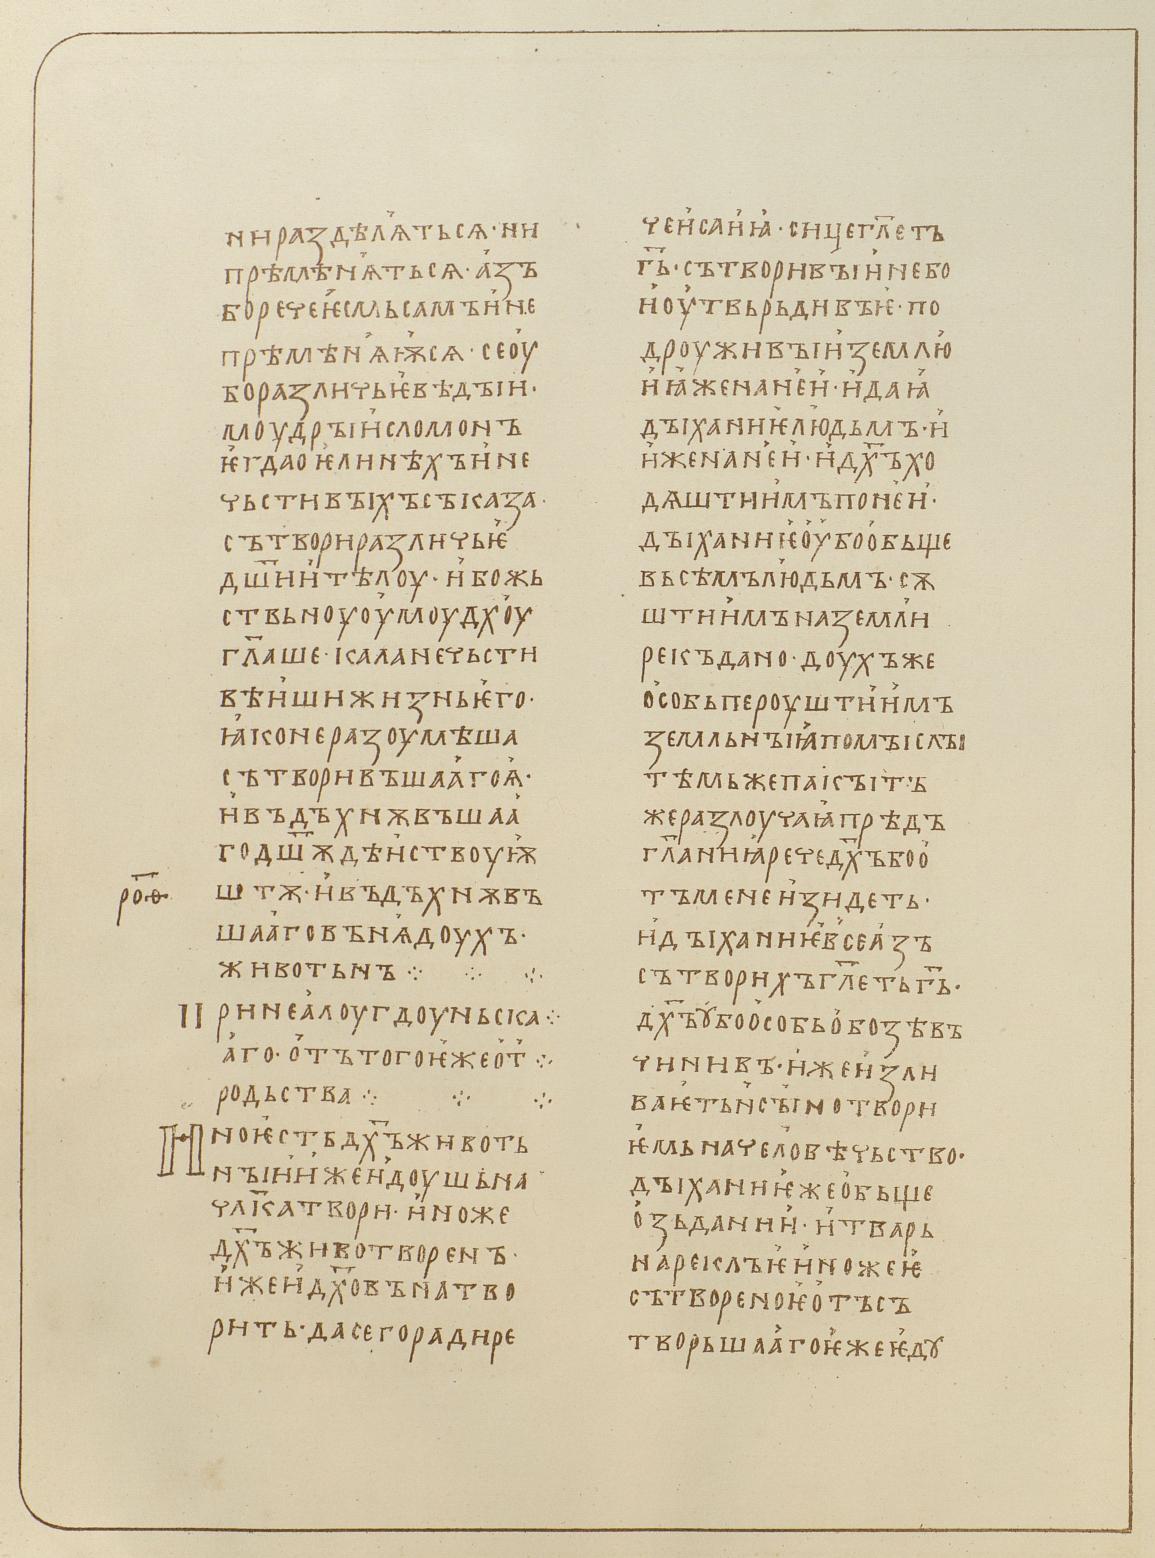 ни разд҄ѣлѧ҄тьсѧ· ни
прѣмѣнѧ҄тьсѧ· а҆зъ
бо рече ѥ҆смь самъ и҆ не
прѣмѣнѧ҄ѭсѧ· се оу҆
бо различьѥ҆ вѣдꙑи·
моудрꙑи҆ соломонъ
ѥ҆гда о ѥ҆линѣхъ и҆ не
чьстивꙑхъ съказа·
сътвори различьѥ҆
дш҃и и҆ тѣлоу· и҆ божь
ствьноуоу҆моу дх҃оу҆
гл҃аше· кала нечьсти
вѣи҆ши жизнь ѥ҆го·
ꙗ҆ко не разоумѣша
сътворивъшаа҆го ѧ҆·
и҆ въдъхнѫвъшаа҆
го дш҃ѫ дѣи҆ствоуѭ҆
штѫ· и҆ въдъхнѫвъ
шаа҆го въ нѧ҄ доухъ·
животьнъ ⁘ ⁘ ⁘
ро҃ѳ·
При неа҆лоугдоуньска ⁘
а҆го· отъ того ѥ҆же о҆т ⁘
родьства ⁘ ⁘ ⁘
Ино ѥ҆стъ дх҃ъ животь
нꙑи҆ и҆же и҆ доушьна
чл҃ка твори· и҆но же
дх҃ъ животворенъ·
и҆же и҆ дх҃овьна тво
рить· да сего ради ре
че и҆саи҆ꙗ҆· сице гл҃еть
г҃ь· сътворивꙑи҆ небо
и҆ оу҆твьрьдивъ ѥ҆· по
дроуживꙑи҆ землю҆
и҆ ꙗ҆же на неи҆· и҆ даꙗ҆
дꙑханиѥ҆ людьмъ· и҆
и҆же на неи҆· и҆ дх҃ъ хо
дѧштиимъ по неи҆·
дꙑханиѥ҆ оу҆бо о҆бьще
вьсѣмъ людьмъ· сѫ
штиимъ на земли
рекъ дано· доухъ же
о҆собь пероуштии҆мъ
земльнꙑꙗ҆ помꙑслꙑ
тѣмьже пакꙑ тъ
же разлоучаꙗ҆ прѣдъ
гл҃аниꙗ҆ рече дх҃ъ бо о҆
тъ мене и҆зидеть·
и҆ дꙑханиѥ҆ все а҆зъ
сътворихъ гл҃еть г҃ь·
дх҃ъ ꙋ҆бо о҆собь о҆ бозѣ въ
чинивъ· и҆же и҆зли
ваѥ҆ть и҆ сꙑно твори
ѥ҆мь на человѣчьство·
дꙑханиѥ҆ же о҆бьще
о҆ зьдании҆· и҆ тварь
нарекль ѥ҆ и҆но же ѥ҆
сътвореноѥ҆ о҆тъ съ
творьшаа҆го ѥ҆же ѥ҆дꙋ